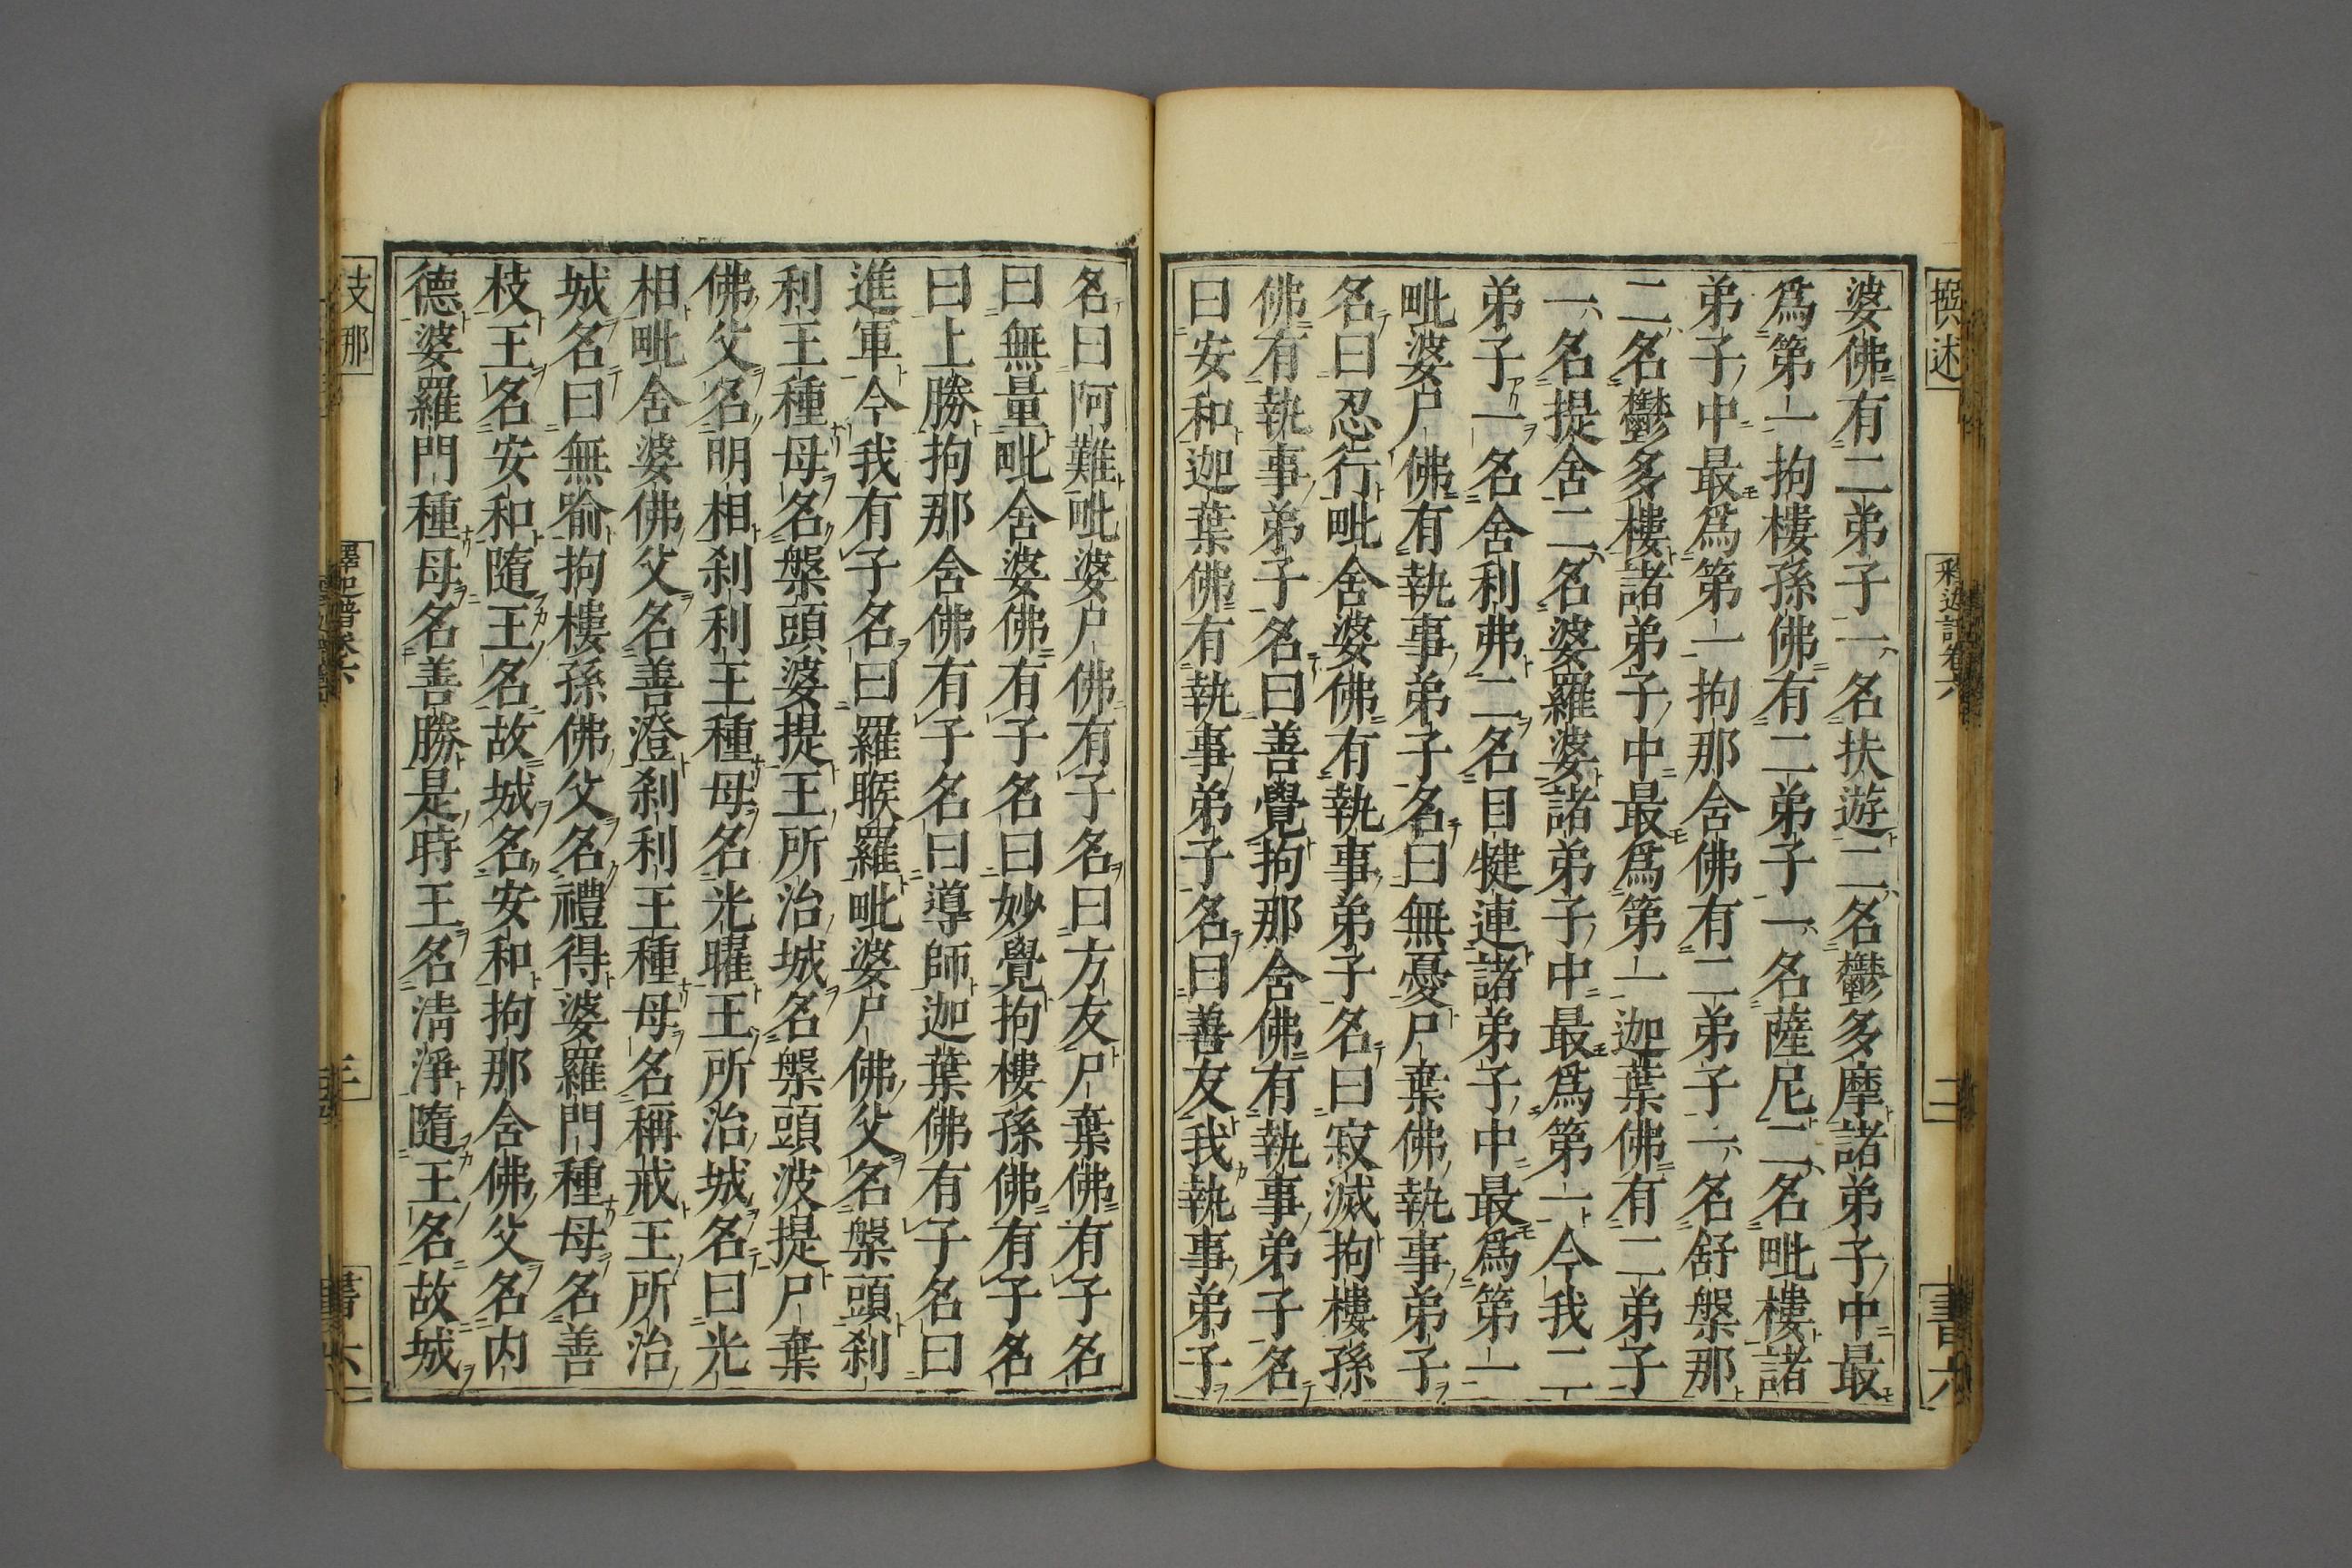 撰述
釋迦譜卷六
二
書六
婆佛有二弟子一名扶遊二名鬱多摩諸弟子中最
爲第一拘樓孫佛有二弟子一名薩尼二名毗樓諸
弟子中最爲第一拘那舍佛有二弟子一名舒槃那
二名鬱多樓諸弟子中最爲第一迦葉佛有二弟子
一名提舍二名婆羅婆諸弟子中最爲第一今我二
弟子一名舍利弗二名目犍連諸弟子中最爲第一
毗婆尸佛有執事弟子名曰無憂尸棄佛執事弟子
名曰忍行毗舍婆佛有執事弟子名曰寂滅拘樓孫
佛有執事弟子名曰善覺拘那舍佛有執事弟子名
曰安和迦葉佛有執事弟子名曰善友我執事弟子
名曰阿難毗婆尸佛有子名曰方友尸棄佛有子名
曰無量毗舍婆佛有子名曰妙覺拘樓孫佛有子名
曰上勝拘那舍佛有子名曰導師迦葉佛有子名曰
進軍今我有子名曰羅睺羅毗婆尸佛父名槃頭刹
利王種母名槃頭婆提王所治城名槃頭波提尸棄
佛父名明相刹利王種母名光曜王所治城名曰光
相毗舍婆佛父名善澄刹利王種母名稱戒王所治
城名曰無喻拘樓孫佛父名禮得婆羅門種母名善
枝王名安和隨王名故城名安和拘那舍佛父名內
德婆羅門種母名善勝是時王名淸淨隨王名故城
支那
釋迦譜卷六
三
書六